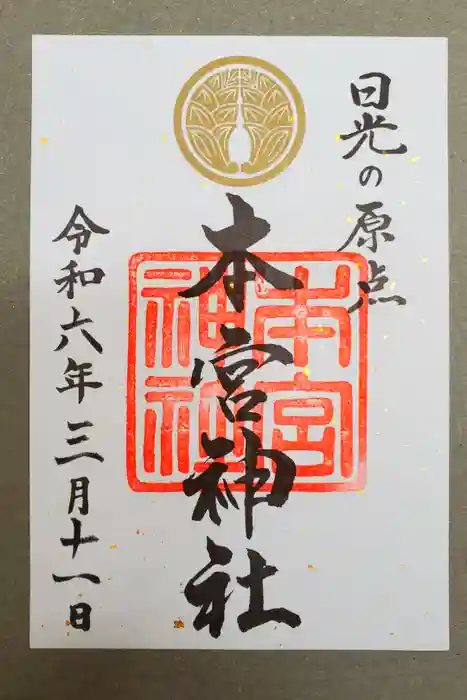 日光の原点
本宮神社
本宮
神社
令和六年三月十一日